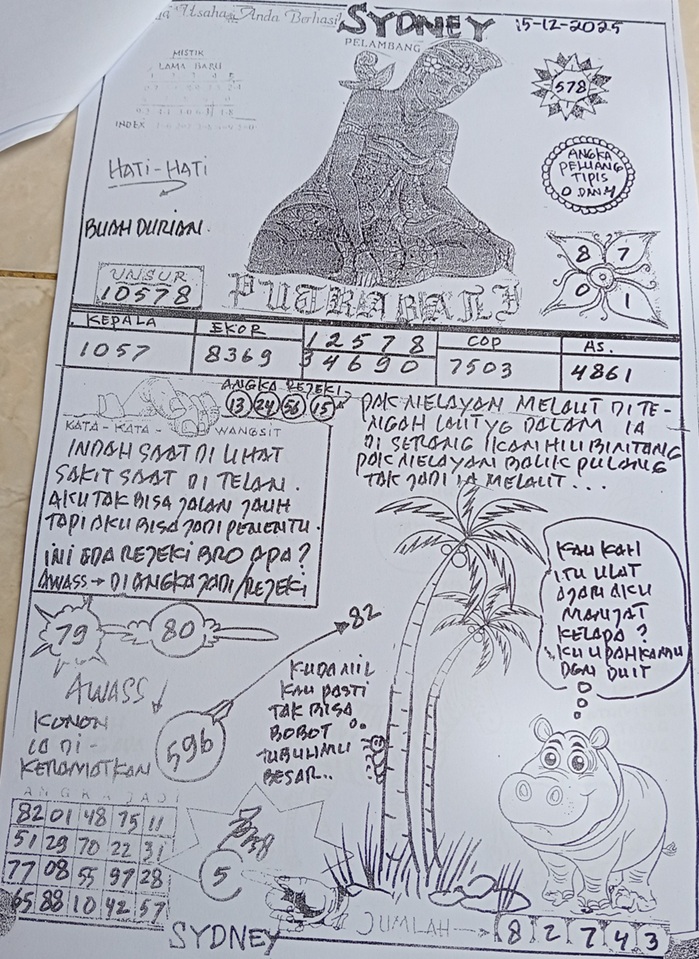 Usaha Anda Berhasil
SYDNEY
15-12-2025
PELAMBANG
MISTIK
LAMA BARU
INDEX
578
HATI-HATI
ANGKA
PELUANG
TIPIS
0 DAN 4
BUAH DURIAN.
8 7
0 1
UNSUR
10578
PUTRA BALI
KEPALA
1057
EKOR
8369
12578
34690
COP
7503
AS.
4861
ANGKA REJEKI
13 24 58 15
KATA-KATA WANGSIT
INDAH SAAT DI LIHAT
SAKIT SAAT DI TELAN.
AKU TAK BISA JALAN JAUH
TAPI AKU BISA JADI PENENTU.
INI ADA REJEKI BRO APA?
AWASS → DI ANGKA JADI/REJEKI
PAK NELAYAN MELAUT DI TE-
NGAH LAUT YG DALAM IA
DI SERANG IKAN HIU BINTANG
PAK NELAYAN BALIK PULANG
TAK JADI IA MELAUT...
KAU KAH
ITU ULAT
AJARI AKU
MANJAT
KELAPA?
KU UPAH KAMU
DGN DUIT
79
80
82
AWASS!
596
KONON
IA DI-
KERAMATKAN
KUDA NIL
KAU PASTI
TAK BISA
BOBOT
TUBUHMU
BESAR..
ANGKA JADI
82 01 48 75 11
51 29 70 22 31
77 08 55 97 28
65 88 10 42 57
5
JUMLAH → 8 2 7 4 3
SYDNEY